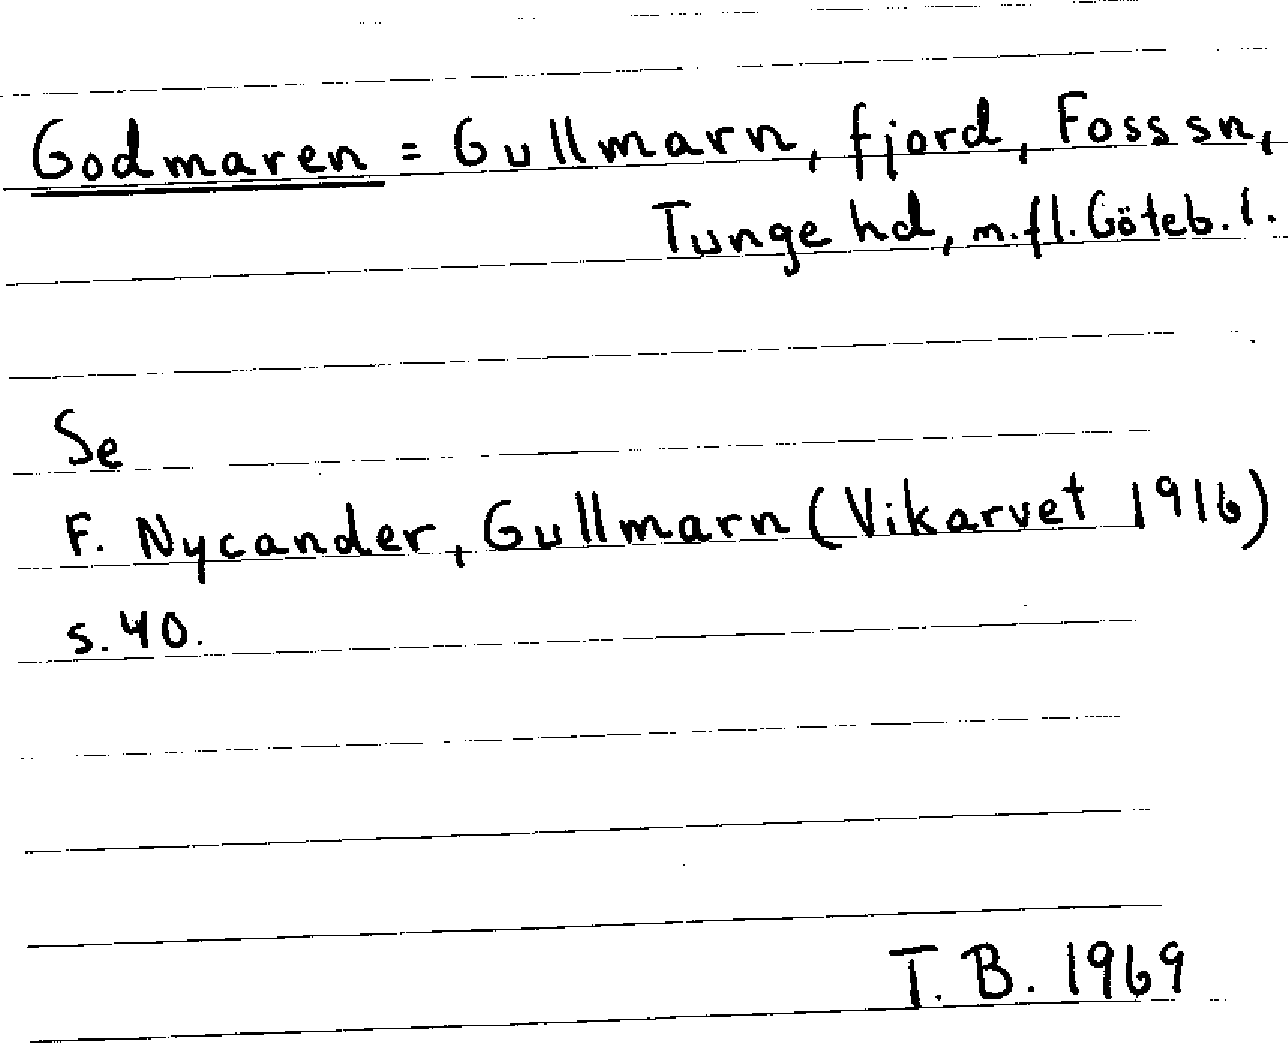 Godmaren = Gullmarn, fjord, Foss sn,
Tunge hd, m.fl. Göteb. l.
Se
F. Nycander, Gullmarn (Vikarvet 1916)
s. 40.
T. B. 1969